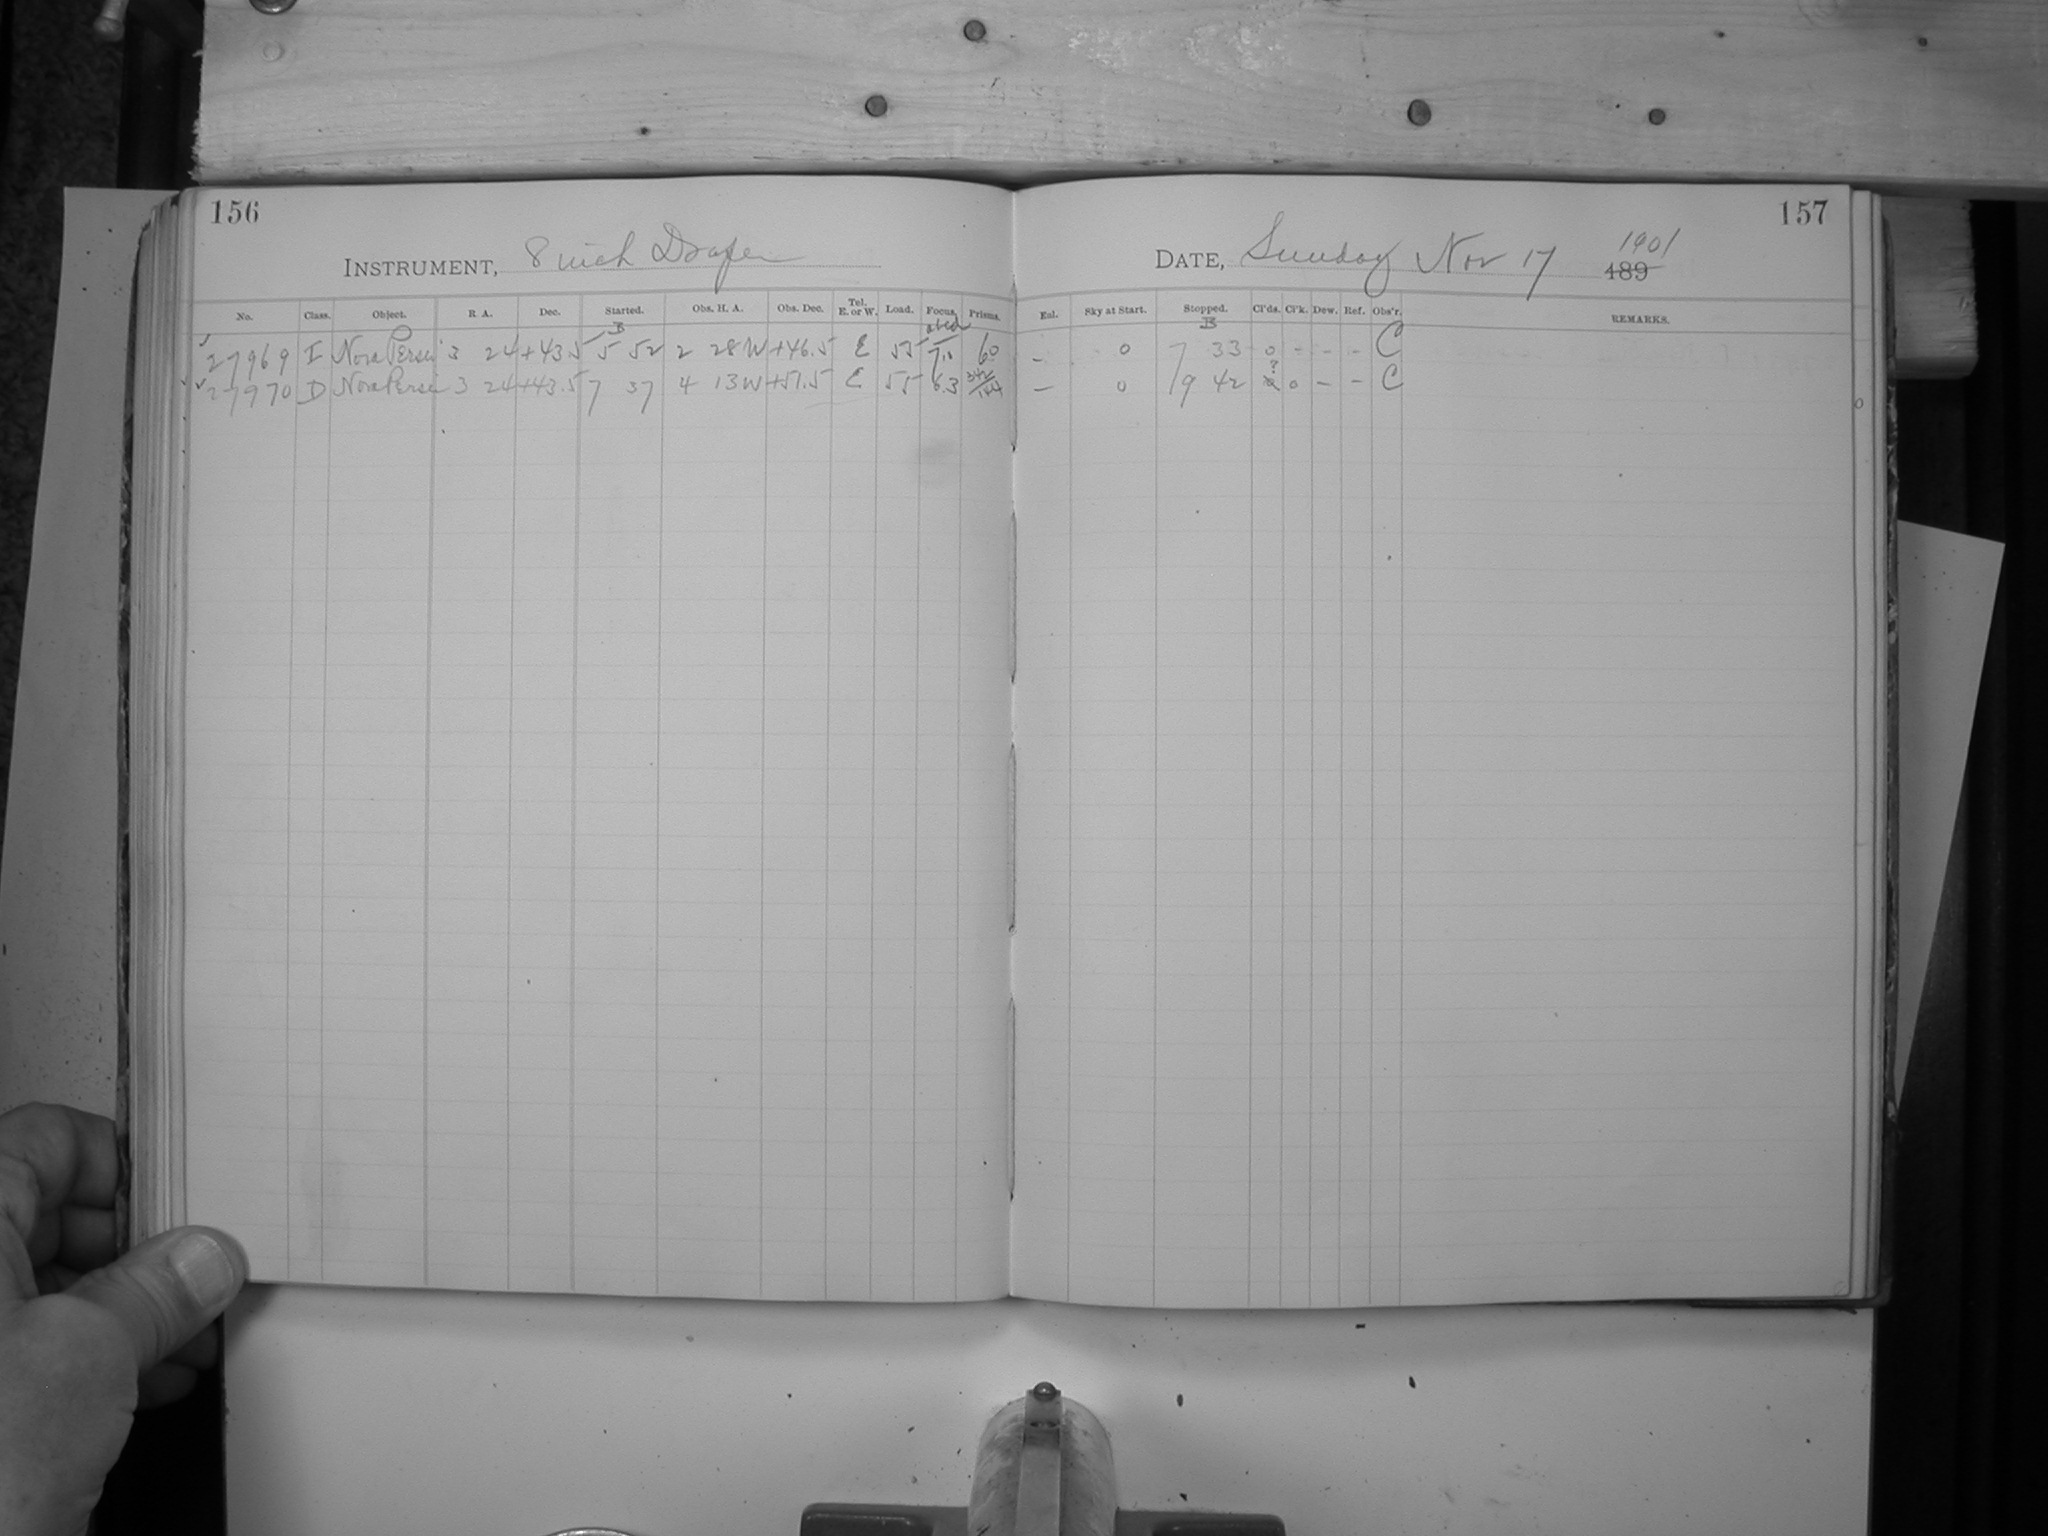 156
INSTRUMENT, 8 inch Draper
No. Class. Object. R A. Dec. Started. Obs. H. A. Obs. Dec. Tel. E. or W. Load. Focus. Prisms.
B abcd
27969 I Nova Persei 3 24 +43.5 5 52 2 28 W +46.5 E 55 7.0 60
27970 D Nova Persei 3 24 +43.5 7 37 4 13 W +51.5 E 55 6.3
157
DATE, Sunday Nov 17 1901
189
Eul. Sky at Start. Stopped. Cl'ds. Cl'k. Dew. Ref. Obs'r. REMARKS.
B
- 0 7 33 0 - - - C
?
- 0 19 42 0 - - C